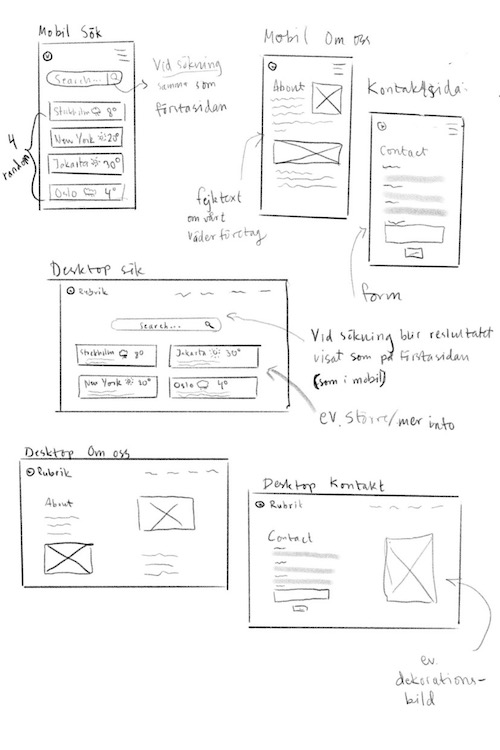 Mobil Sök
Search...
Stockholm 8°
New York 20°
Jakarta 30°
Oslo 4°
4
random
Vid sökning
samma som
förstasidan
Mobil Om oss
About
fejktext
om vårt
väderföretag
Kontaktsida:
Contact
form
Desktop sök
Rubrik
Search...
Stockholm 8°
Jakarta 30°
New York 20°
Oslo 4°
Vid sökning blir resultatet
visat som på förstasidan
(som i mobil)
ev. större/mer info
Desktop Om oss
Rubrik
About
Desktop Kontakt
Rubrik
Contact
ev.
dekorations-
bild